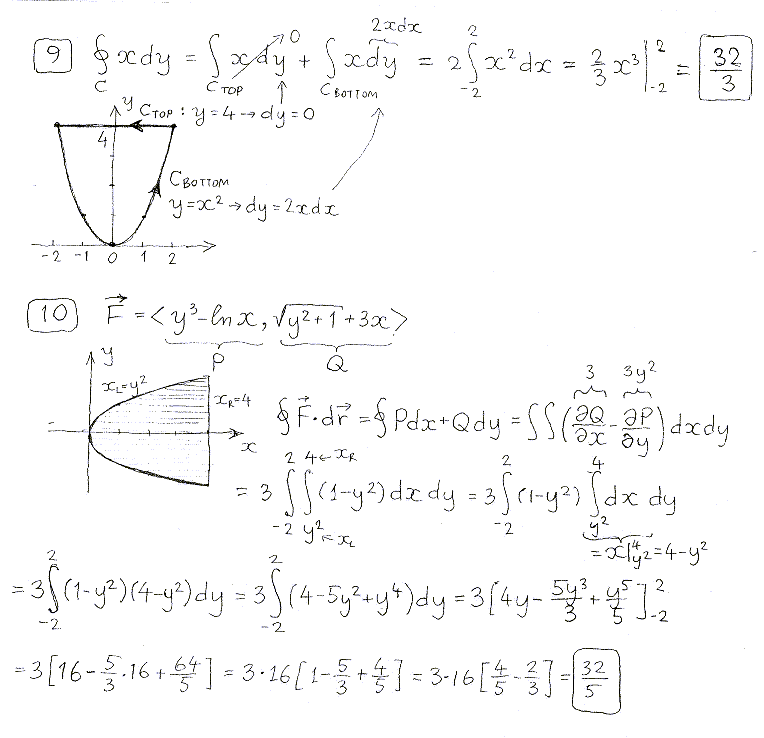 9 ∮_C xdy = ∫_{C TOP} xdy + ∫_{C BOTTOM} xdy = 2∫_{-2}^{2} x²dx = 2/3 x³ |_{-2}^{2} = 32/3
0
2xdx
y
C TOP : y=4 → dy=0
4
C BOTTOM
y=x² → dy=2xdx
-2 -1 0 1 2
10 F⃗ = <y³-lnx, √(y²+1)+3x>
P Q
y
x_L=y²
x_R=4
x
3 3y²
∮F⃗·dr⃗ = ∮Pdx+Qdy = ∫∫(∂Q/∂x - ∂P/∂y)dxdy
= 3 ∫_{-2}^{2} ∫_{y² ← x_L}^{4 ← x_R} (1-y²)dxdy = 3∫_{-2}^{2} (1-y²) ∫_{y²}^{4} dx dy
= x|_{y²}^{4} = 4-y²
= 3∫_{-2}^{2} (1-y²)(4-y²)dy = 3∫_{-2}^{2} (4-5y²+y⁴)dy = 3[4y - 5y³/3 + y⁵/5]_{-2}^{2}
= 3[16 - 5/3·16 + 64/5] = 3·16[1 - 5/3 + 4/5] = 3·16[4/5 - 2/3] = 32/5